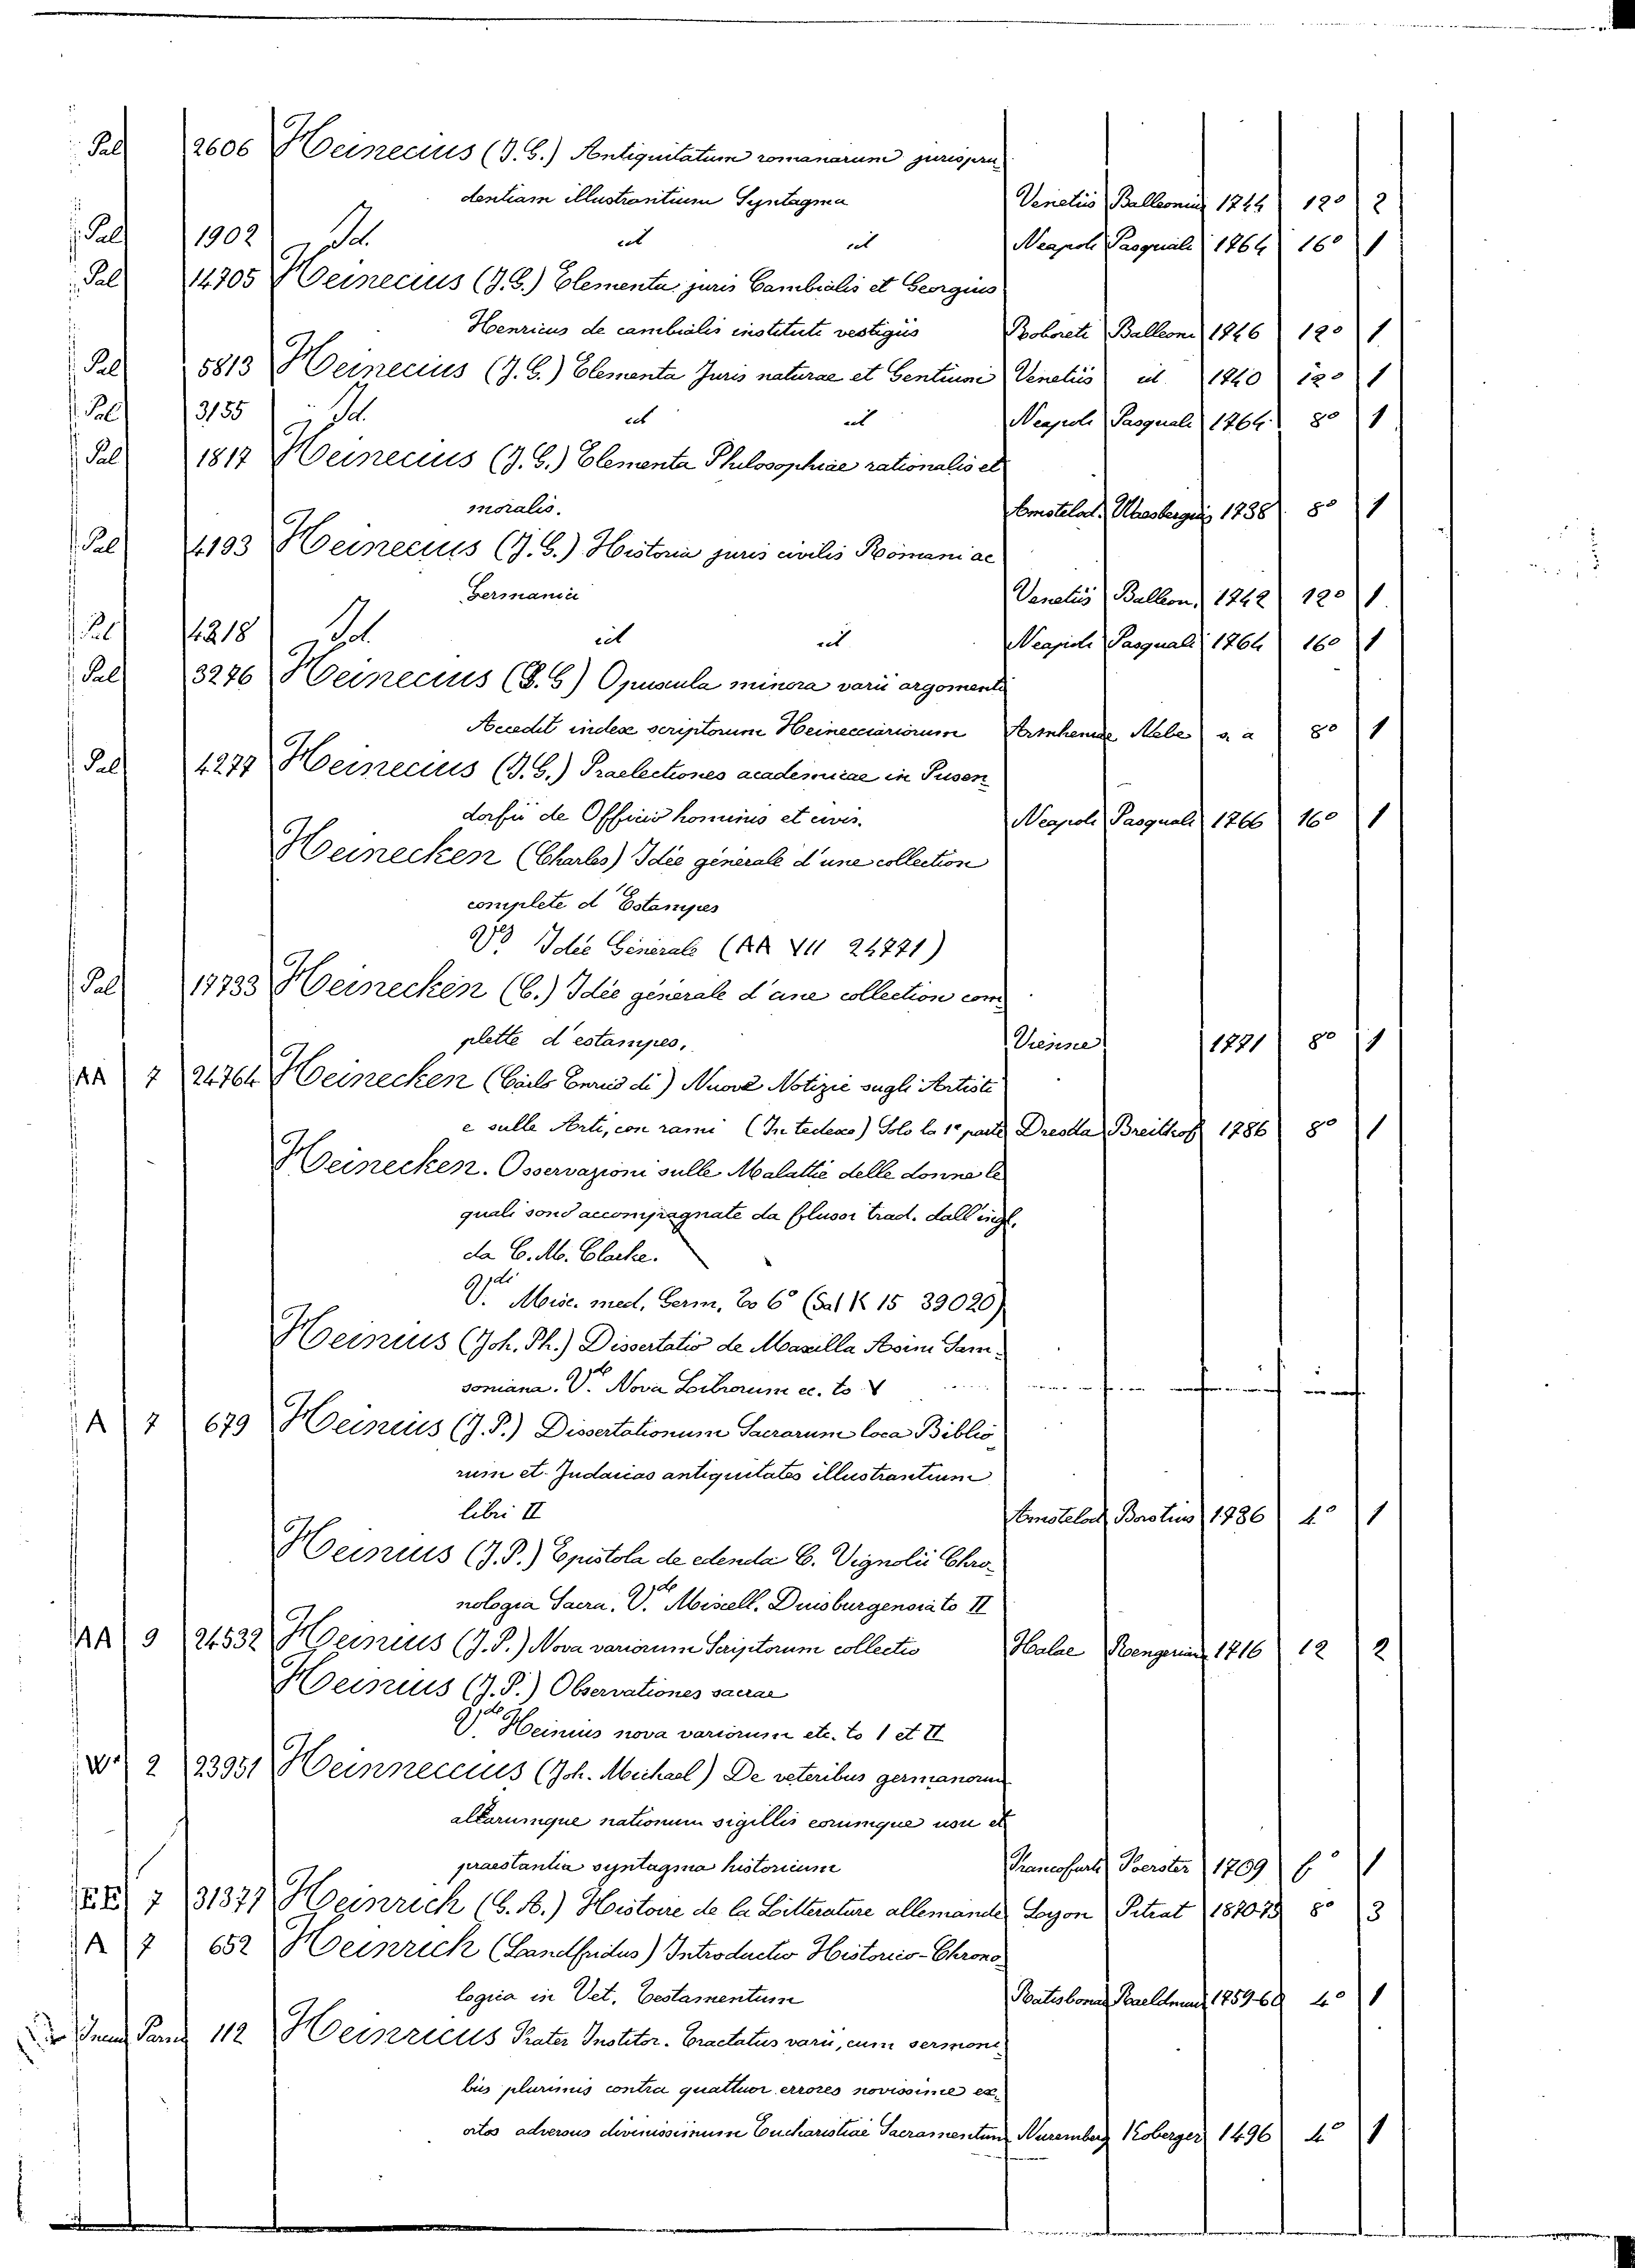 Pal 2606 Heinecius (J. G.) Antiquitatum romanarum jurispru
dentiam illustrantium Syntagma Venetiis Balleonius 1744 12° 2
Pal 1902 Id. id id Neapoli Pasquali 1764 16° 1
Pal 14705 Heinecius (J. G.) Elementa juris Cambialis et Georgius
Henricus de cambialis institute vestigiis Roboreti Balleoni 1746 12° 1
Pal 5813 Heinecius (J. G.) Elementa Juris naturae et Gentium Venetiis id. 1740 12° 1
Pal 3155 Id. id id Neapoli Pasquali 1764 8° 1
Pal 1817 Heinecius (J. G.) Elementa Philosophiae rationalis et
moralis. Amstelod. 1738 8° 1
Pal 4193 Heinecius (J. G.) Historia juris civilis Romani ac
Germanici Venetiis Balleon. 1742 12° 1
Pal 4218 Id. id id Neapoli Pasquali 1764 16° 1
Pal 3276 Heinecius (J. G) Opuscula minora varii argomenti
Accedit index scriptorum Heinecciariorum s. a 8° 1
Pal 4277 Heinecius (J. G.) Praelectiones academicae in Pusen
dorfii de Officio hominis et civis. Neapoli Pasquali 1766 16° 1
Heinecken (Charles) Idée générale d'une collection
complete d'Estampes
Vd Idée Générale (AA VII 24771)
Pal 17733 Heinecken (C.) Idée générale d'une collection com
plette d'estampes, Vienne 1771 8° 1
AA 7 24764 Heinecken (Carlo Enrico di) Nuove Notizie sugli Artisti
e sulle Arti, con rami (In tedesco) Solo la 1a parte Dresda Breitkof 1786 8° 1
Heinecken. Osservazioni sulle Malattie delle donne le
quali sono accompagnate da flussi trad. dall'ingl.
da C. M. Clarke.
V.di Misc. med. Germ. to 6° (Sal K 15 39020)
Heinius (Joh. Ph.) Dissertatio de Maxilla Asini Sam-
soniana. V.de Nova Librorum ec. to V
A 7 679 Heinius (J. P.) Dissertationum Sacrarum loca Biblio
rum et Judaicas antiquitates illustrantium
libri II Amstelod. 1736 4° 1
Heinius (J. P.) Epistola de edenda C. Vignolii Chro-
nologia Sacra. V.de Miscell. Duisburgensia to II
AA 9 24532 Heinius (J. P.) Nova variorum Scriptorum collectio Halae Rengeriana 1716 12 2
Heinius (J. P.) Observationes sacrae
V.de Heinius nova variorum etc. to 1 et II
W 2 23951 Heinneccius (Joh. Michael) De veteribus germanorum
aliarumque nationum sigillis eorumque usu et
praestantia syntagma historicum Francofurti Foerster 1709 f° 1
EE 7 31377 Heinrich (G. A.) Histoire de la Litterature allemande Lyon Pitrat 1870-73 8° 3
A 7 652 Heinrich (Landfridus) Introductio Historico-Chrono
logica in Vet. Testamentum Ratisbonae 1759-60 4° 1
112 Heinricus Frater Institor. Tractatus varii, cum sermoni
bus plurimis contra quattuor errores novissime ex-
ortos adversus divinissimum Eucharistiae Sacramentum Nuremberg Koberger 1496 4° 1